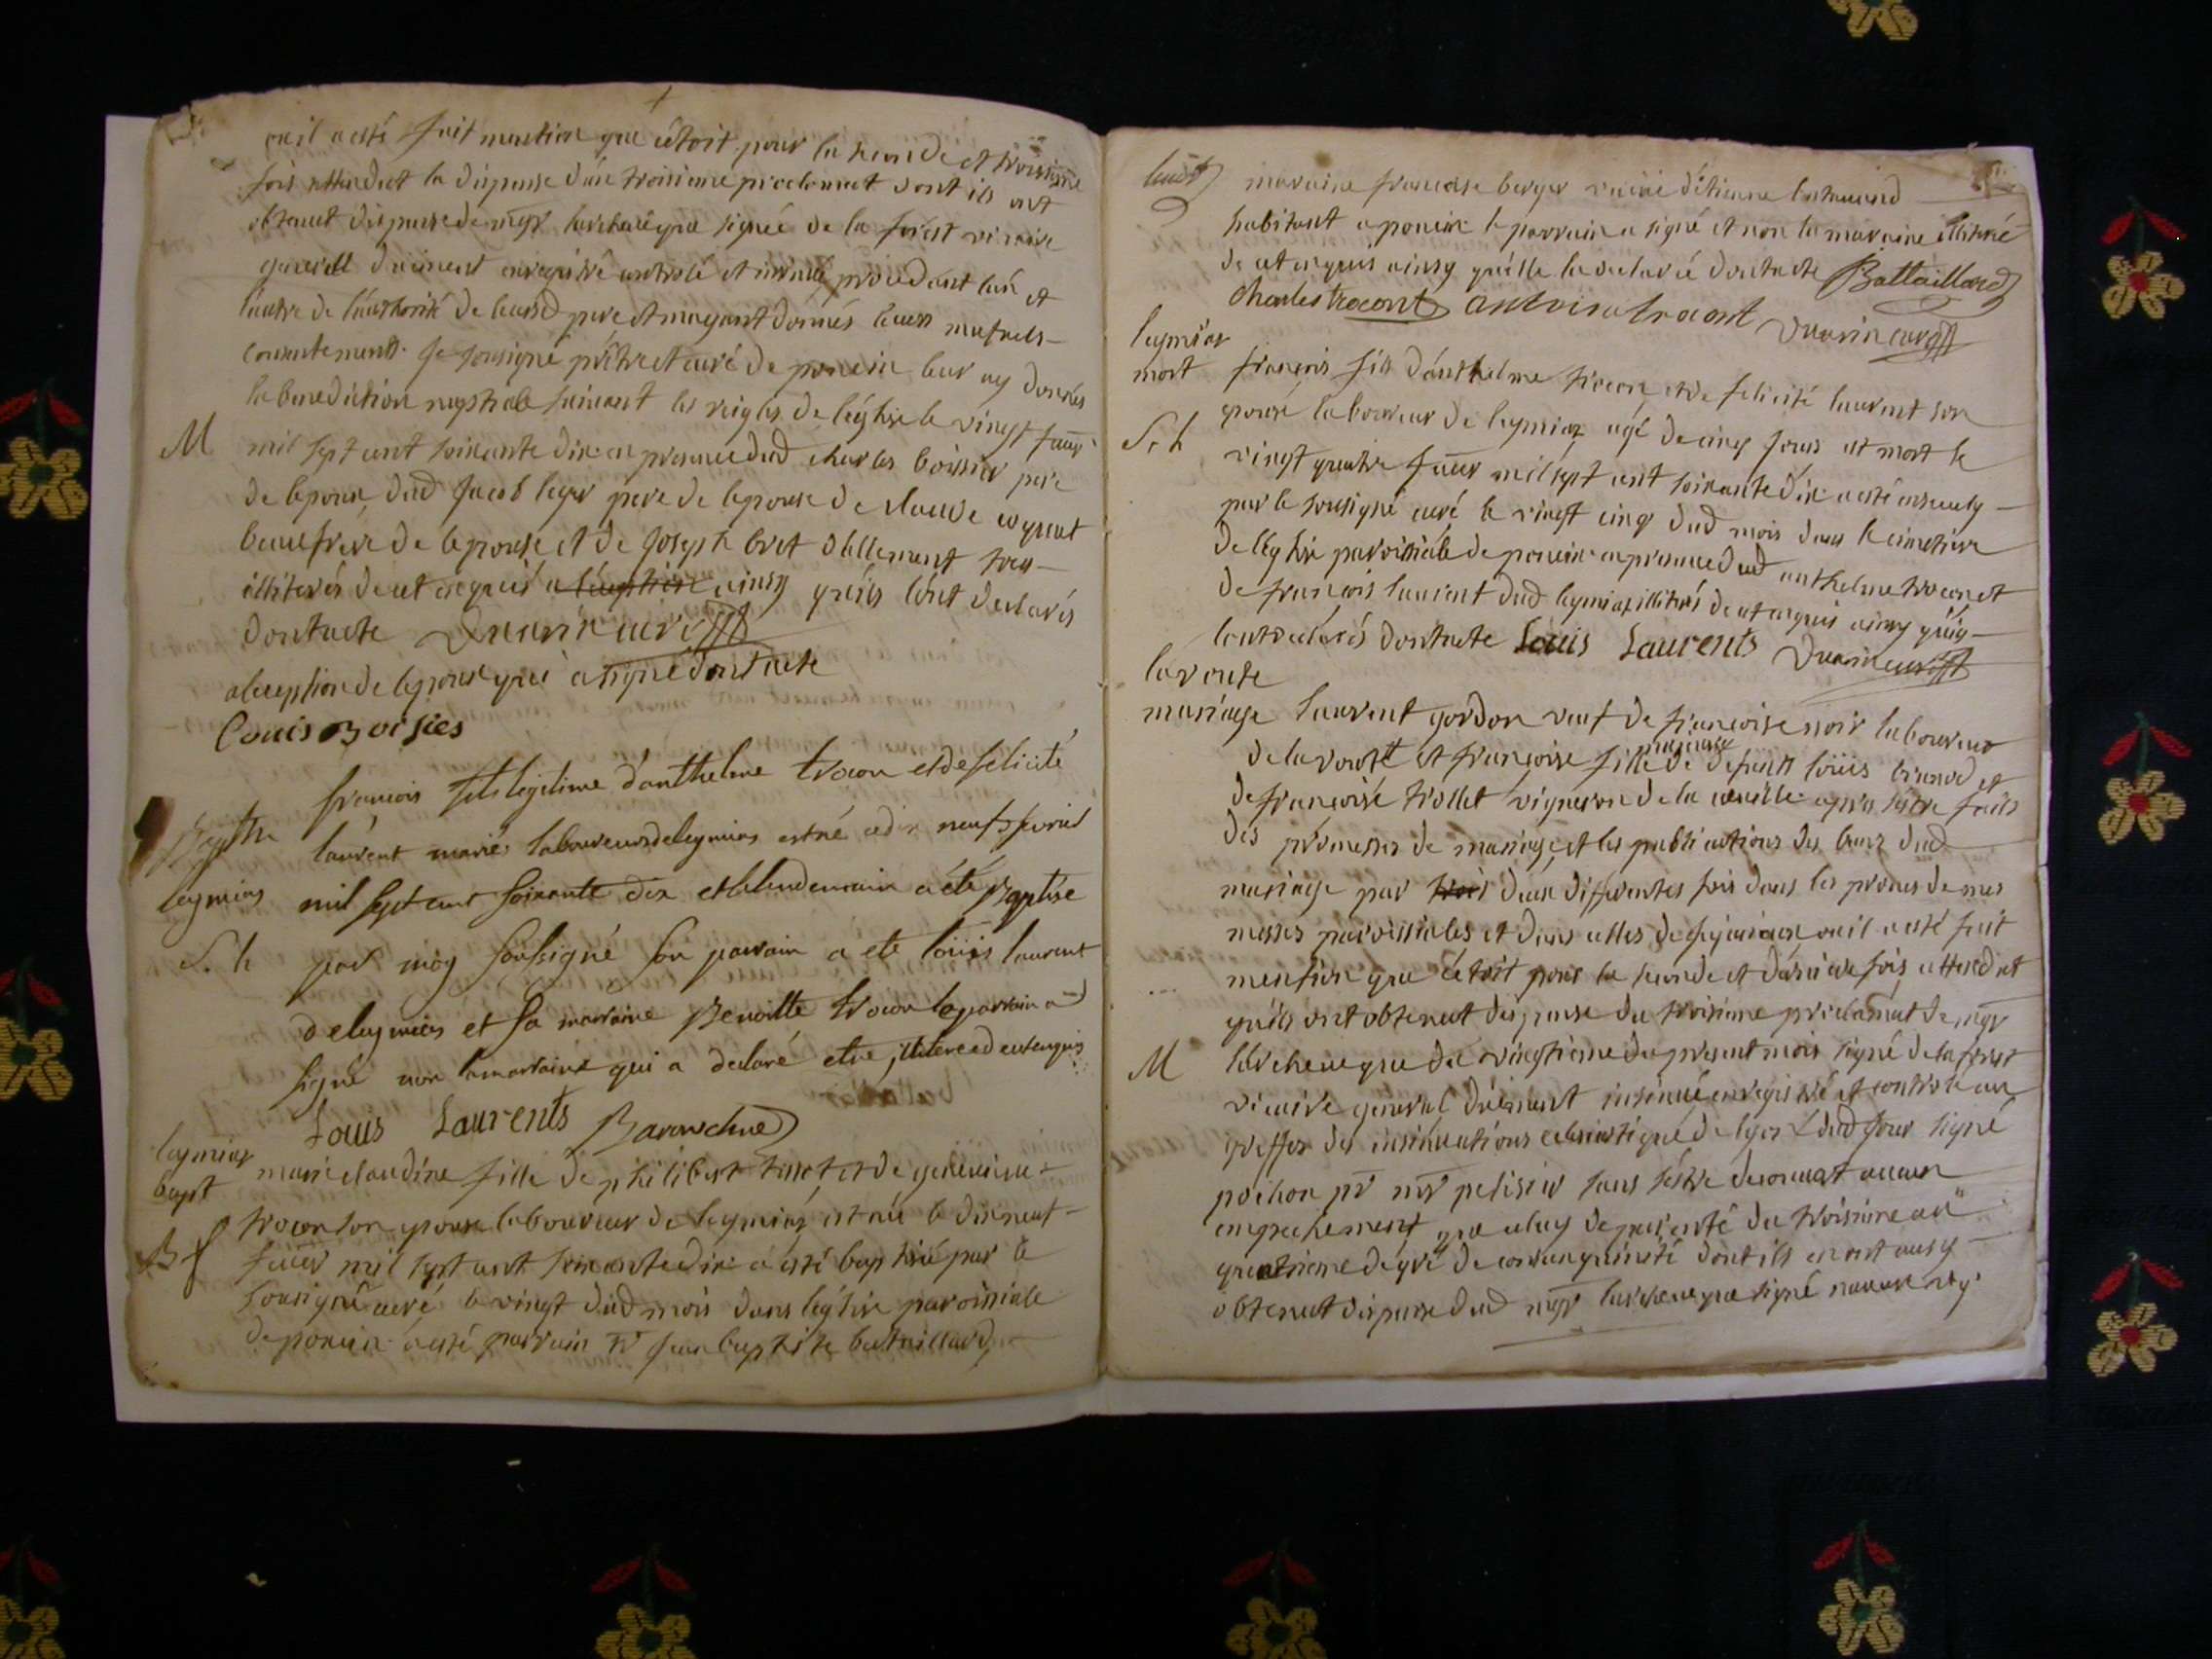 ou il a esté fait mention que c'étoit pour la seconde et troisieme
fois attendut la dispense d'un troisieme proclamat dont ils ont
obtenut dispense de mgr larcheveque signée de la forest vicaire
generall duement enregistré controlé et insinué, procedant l'un et
l'autre de l'authorité de leursd pere et mayant donnés leurs mutuels
consentements. Je sousigné prêtre et curé de poncin leur ay donnés
la benediction nuptiale suivant les reigles de léglise le vingt janv.
M
mil sept cent soixante dix en presence dud charles boissier pere
de lepoux, dud Jacob leger pere de lepouse de claude
beaufrère de lepouse et de Joseph bret tous
illiterés de cet enquis a l'exeption ainsy qu'ils l'ont declarés
dont acte Duarin curé
a lexeption de lepoux qui a signé dont acte
Louis Boisies
françois fils legitime d'anthelme trocon et de felicité
Baptme laurent mariés laboureurs de leymias est né le dix neuf janvier
leymias mil sept cent soixante dix et le lendemain a été Baptisé
S. h par moy soussigné son parrain a ete loüis laurent
de leymias et sa marraine Benoitte trocon le parrain a
signé non la marraine qui a declaré etre illiteree de ce enquis
Louis Laurents
leymias
bapt marie claudine fille de philibert tissot et de genevieve
trocon son epouse laboureur de leymias, est née le dix neuf
B f
janvr mil sept cent soixante dix a esté baptisé par le
sousigné curé le vingt dud mois dans léglise paroissiale
de poncin a esté parrain sr jean baptiste bataillard,
maraine francoise berger veuve d'étienne
habitant a poncin le parrain a signé et non la maraine illiteré
de cet enquis ainsy qu'elle la declaré dont acte Battaillard
Charles trocont antoine trocont Duarin curé
leymias
mort françois fils d'anthelme trocon, et de felicité laurent son
S. h
epouse laboureur de leymias agé de cinq jours est mort le
vingt quatre janvr mil sept cent soixante dix a esté ensevely
par le sousigné curé le vingt cinq dud mois dans le cimetiere
de léglise paroissiale de poncin en presence dud anthelme trocon et
de françois laurent dud leymias illiterés de cet enquis ainsy qu'ils
lont declarés dont acte Louis Laurents Duarin curé
la voute
mariage laurent gordon veuf de françoise noir laboureur
de la voute et françoise fille de defunts loüis brunod et
de françoise trollet vigneron de la apres s'estre faits
des promesses de mariage, et les publications des bans dud
mariage par trois deux differentes fois dans les prones de mes
messes paroissiales et dans celles de jujurieux ou il a esté fait
mention que c'étoit pour la seconde et derniere fois, attendut
qu'ils ont obtenut dispense du troisieme proclamat de mgr
M
larcheveque du vingtieme du present mois signé de la forest
vicaire general duement insinué enregistré et controlé au
greffes des insinuations eclesiastique de lyon dud jour signé
pochon pr mr pelisier sans s'être decouvert aucun
empechement que celuy de parenté du troisieme au
quatrieme dégré de consanguinité dont ils en ont aussy
obtenut dispense dud mgr larcheveque signé